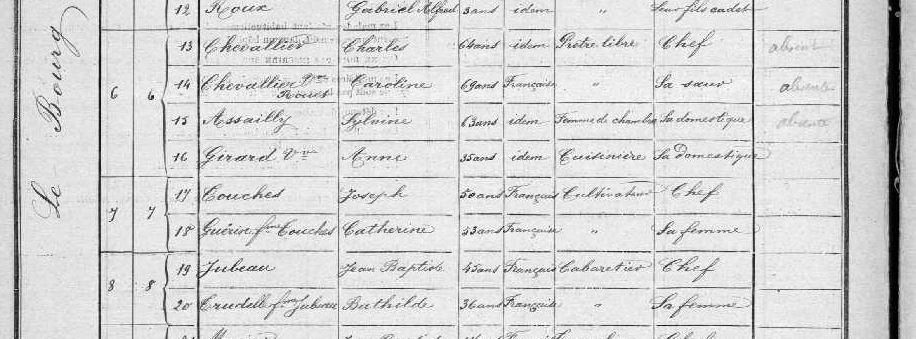 Le Bourg
12 Roux Gabriel Alfred 3 ans idem " Leur fils cadet
13 Chevallier Charles 64 ans idem Prêtre libre Chef absent
6 6 14 Chevallier Vve Caroline 69 ans Française " Sa sœur absente
15 Assailly Sylvine 63 ans idem Femme de chambre Sa domestique absente
16 Girard Vve Anne 35 ans idem Cuisinière Sa domestique
7 7 17 Couches Joseph 50 ans Français Cultivateur Chef
18 Guérin fme Couches Catherine 43 ans Française " Sa femme
8 8 19 Jubeau Jean Baptiste 45 ans Français Cabaretier Chef
20 Trudelle fme Jubeau Bathilde 36 ans Française " Sa femme